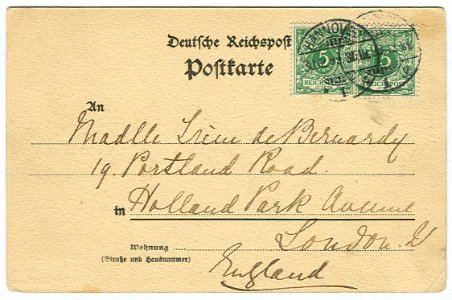 Deutsche Reichspost
Postkarte
HANNOVER
5 5
An
Madlle Irène de Bernardy
19 Portland Road.
in Holland Park Avenue
London W
Wohnung
(Straße und Hausnummer)
England